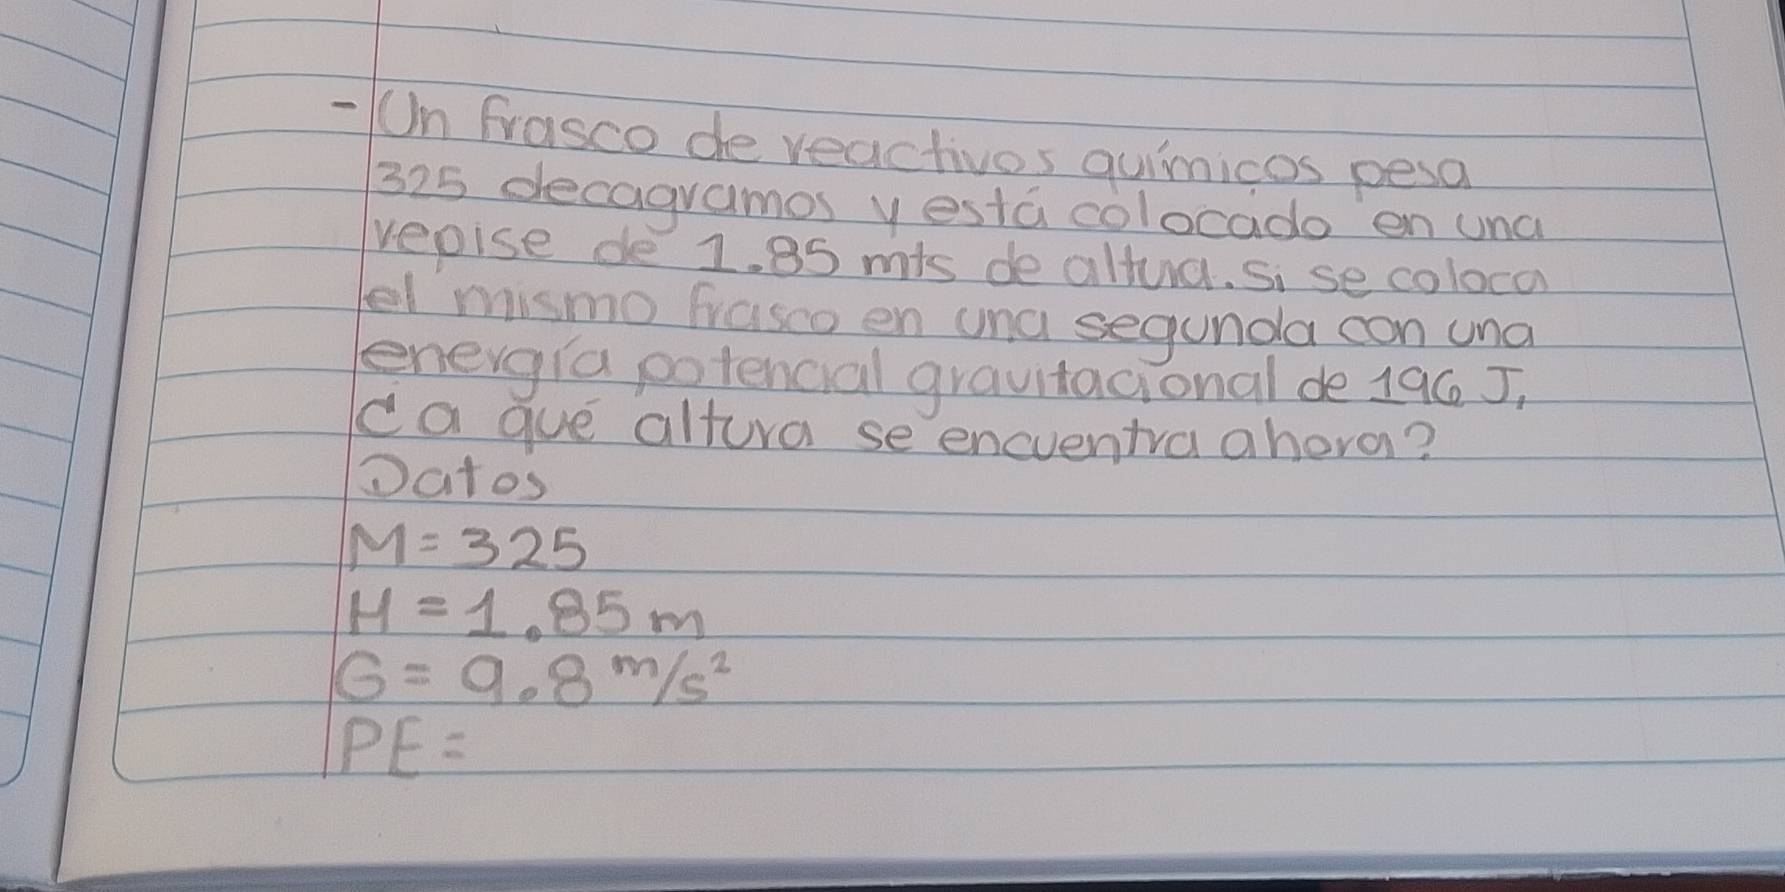 - Un frasco de reactivos químicos pesa
325 decagramos y está colocado en una
repise de 1.85 mts de altura. Si se coloca
el mismo frasco en una segunda con una
energía potencial gravitacional de 196 J,
¿a qué altura se encuentra ahora?
Datos
M = 325
H = 1.85 m
G = 9.8 m/s²
PE =